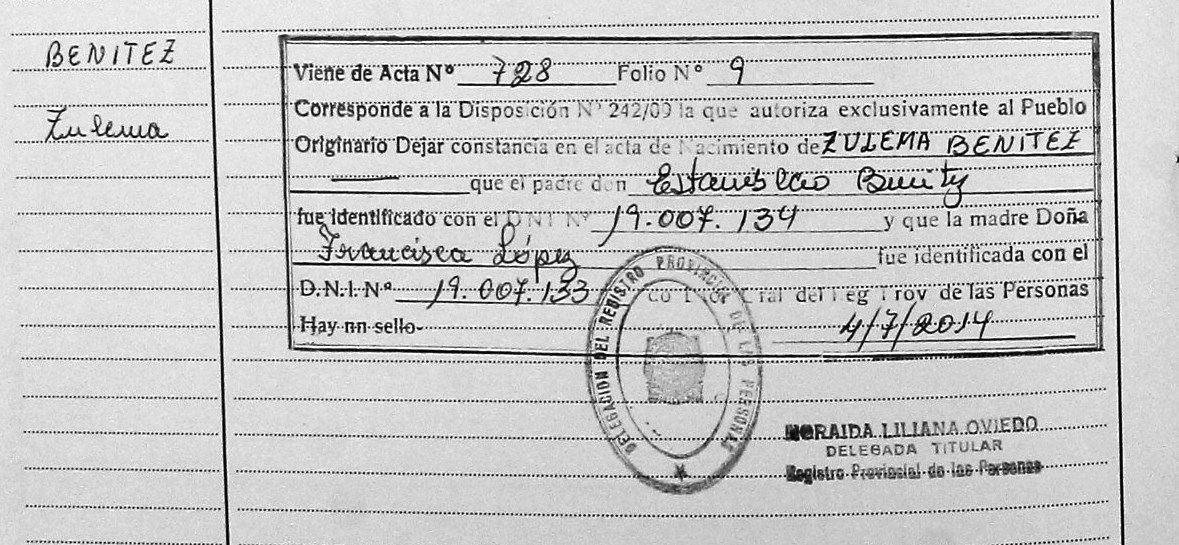 BENITEZ
Zulema
Viene de Acta Nº 728 Folio Nº 9
Corresponde a la Disposición Nº 242/09 la que autoriza exclusivamente al Pueblo
Originario Dejar constancia en el acta de Nacimiento de ZULEMA BENITEZ
que el padre don Estanislao Benitz
fue identificado con el DNI Nº 19.007.134 y que la madre Doña
Francisca López fue identificada con el
D.N.I. Nº 19.007.133 de las Personas
Hay nn sello- 4/7/2014
DELEGACION DEL REGISTRO PROVINCIAL DE LAS PERSONAS
NORAIDA LILIANA OVIEDO
DELEGADA TITULAR
Registro Provincial de las Personas